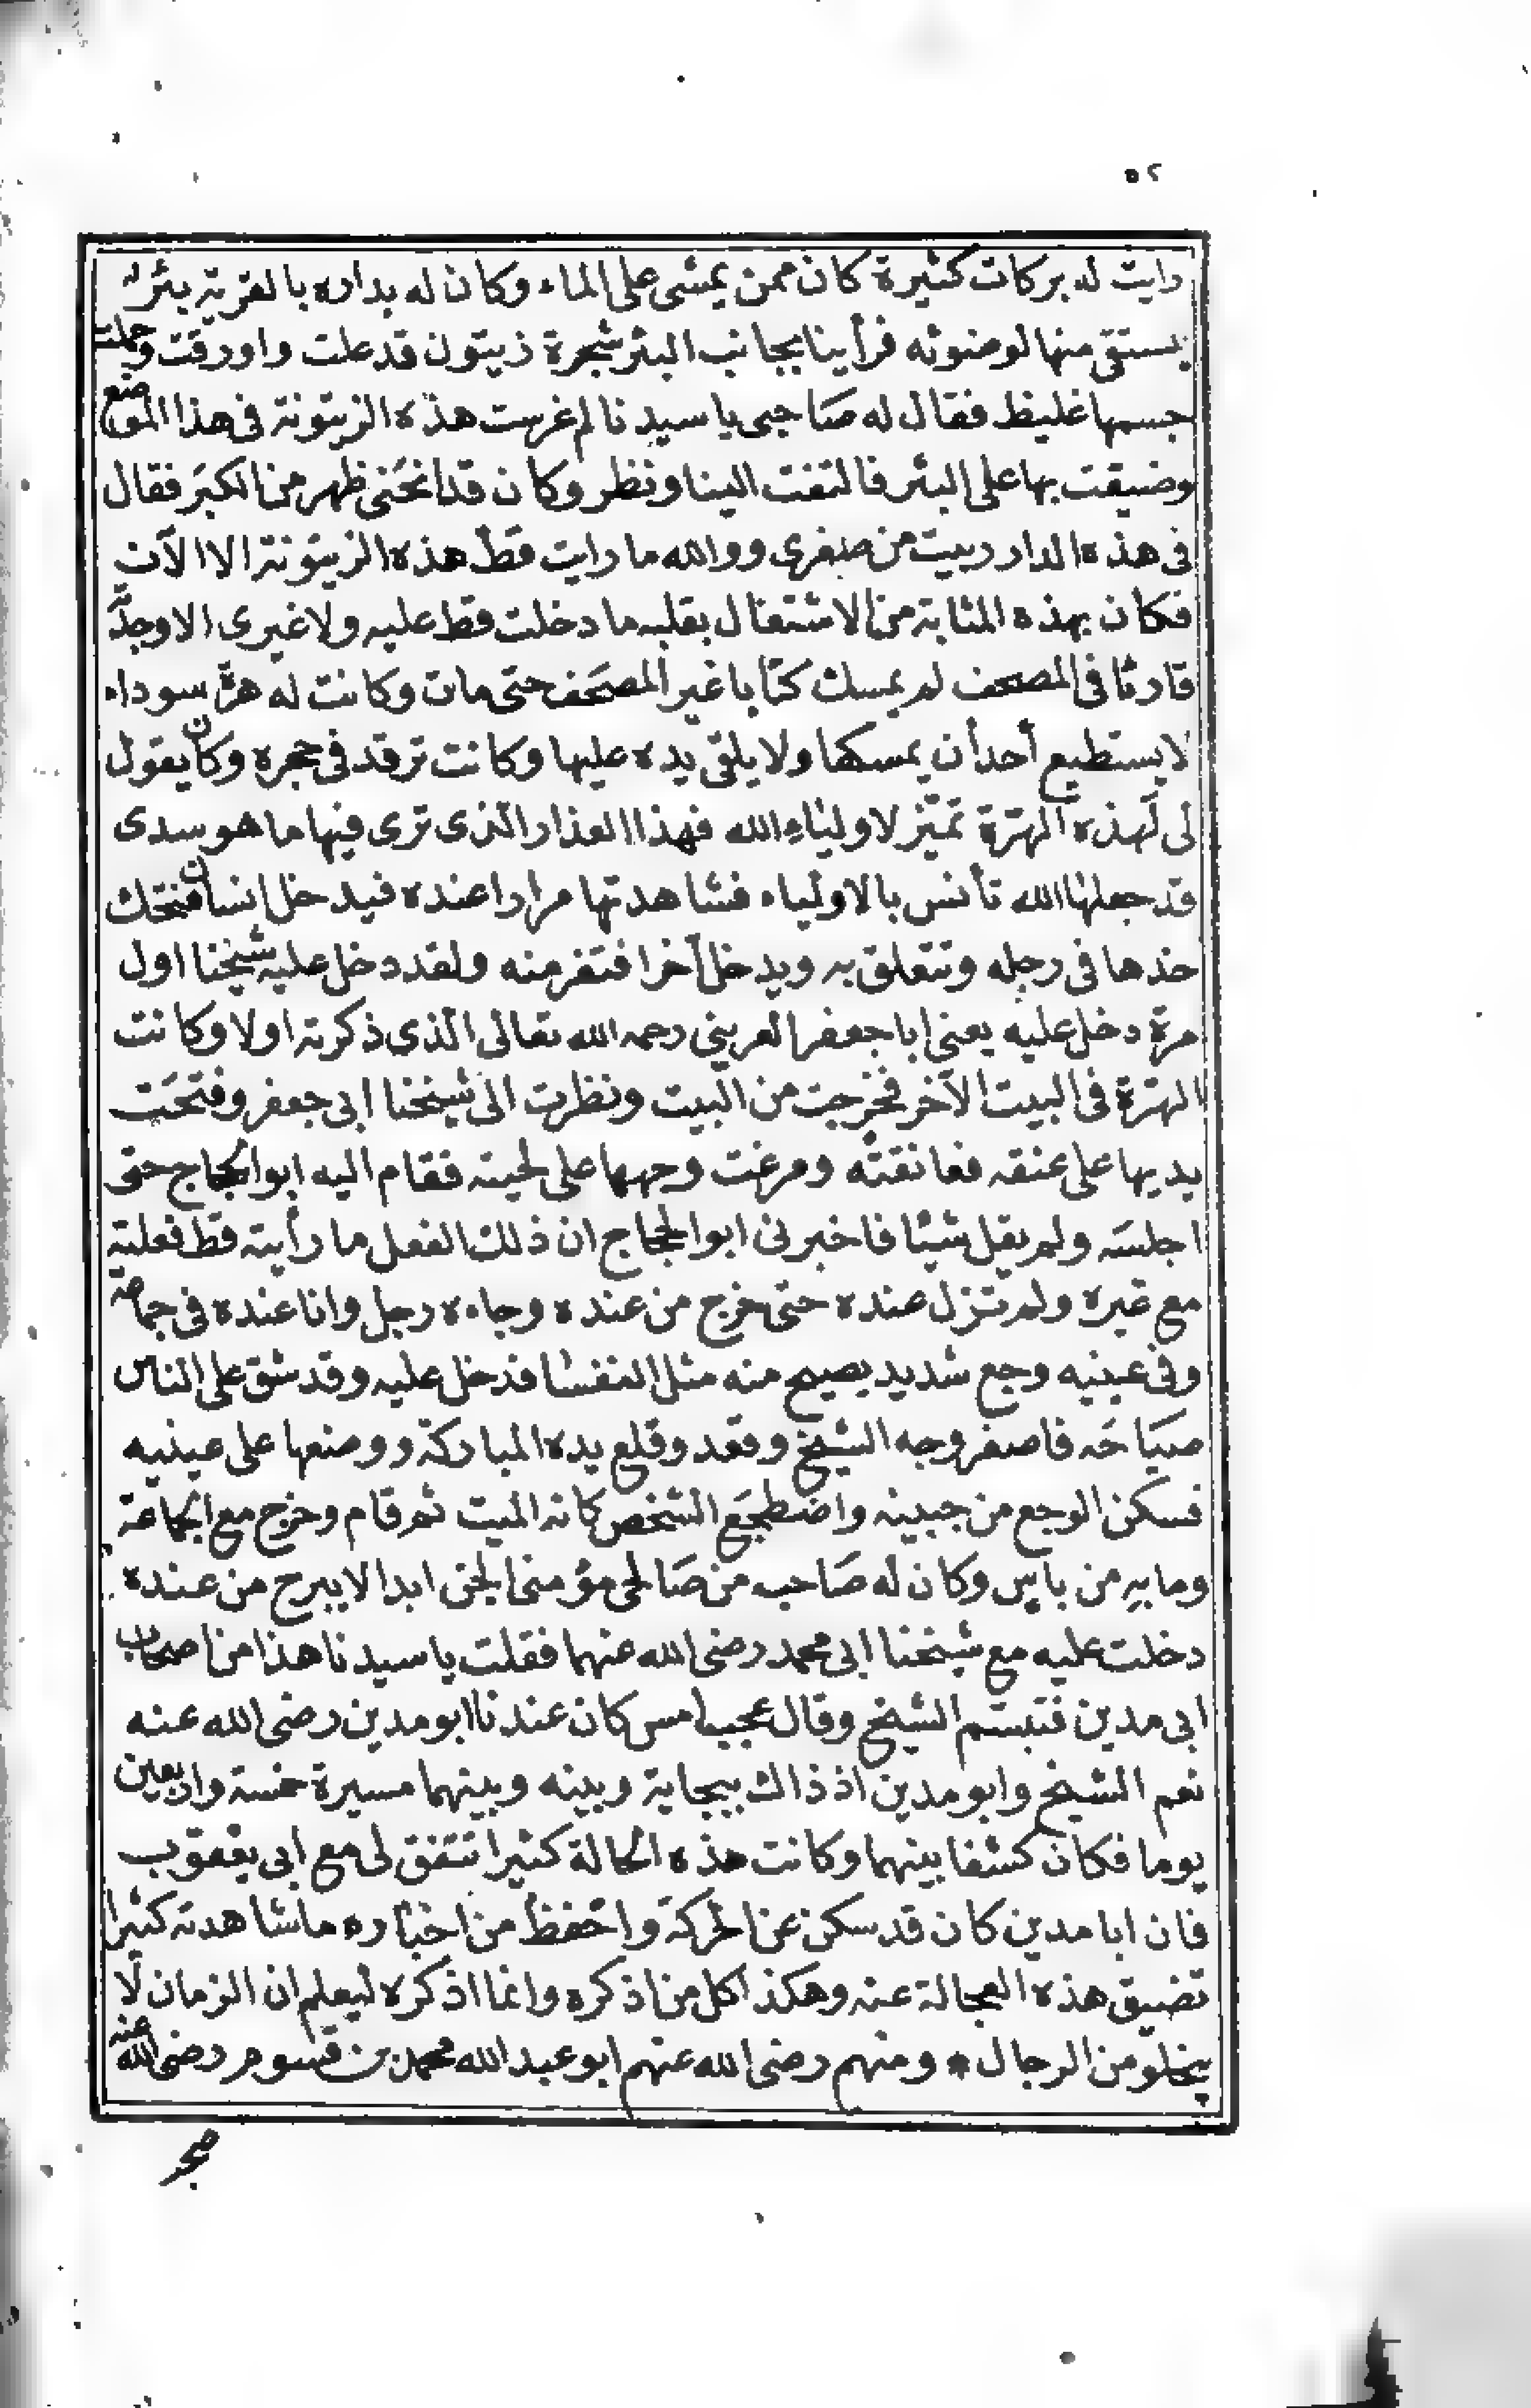 ٥٢
رايت له بركات كثيرة كان ممن يمشى على الماء وكان له بداره بالقرية بئر
يستقى منها لوضوئه فرأينا بجانب البئر شجرة زيتون قد علت واورقت وحملت
جسمها غليظ فقال له صاحبى يا سيدنا لم غرست هذه الزيتونة فى هذا الموضع
وضيقت بها على البئر فالتفت الينا ونظر وكان قد انحنى ظهر من الكبر فقال
فى هذه الدار ربيت من صغرى ووالله ما رايت قط هذه الزيتونة الا الآن
فكان بهذه المثابة من الاشتغال بقلبه ما دخلت قط عليه ولا غيرى الا وجدّ
قارئا فى المصحف لم يمسك كتابا غير المصحف حتى مات وكانت له هرّة سوداء
لا يستطيع أحد أن يمسكها ولا يلقى يده عليها وكانت ترقد فى حجره وكان يقول
لى لهذه الهرّة تميّز لاولياء الله فهذا العذار الذى ترى فيها ما هو سدى
قد جعلها الله تأنس بالاولياء فشاهدتها مرارا عنده فيدخل انسان فتحك
خدها فى رجله وتتعلق به ويدخل آخرا فتفر منه ولقد دخل عليه شيخنا اول
مرة دخل عليه يعنى ابا جعفر العرينى رحمه الله تعالى الذى ذكرته اولا وكانت
الهرّة فى البيت الآخر فخرجت من البيت ونظرت الى شيخنا ابى جعفر وفتحت
يديها على عنقه فعانقته ومرغت وجهها على لحيته فقام اليه ابو الحجاج حتى
اجلسه ولم يقل شيئا فاخبرنى ابو الحجاج ان ذلك الفعل ما رأيته قط فعلته
مع غيره ولم تزل عنده حتى خرج من عنده وجاءه رجل وانا عنده فى جماعة
وفى عينيه وجع شديد يصيح منه مثل النفسا فدخل عليه وقد شق على الناس
صياحه فاصفر وجه الشيخ وقعد وقلع يده المباركة ووضعها على عينيه
فسكن الوجع من جبينه واضطجع الشخص كانه الميت ثم قام وخرج مع الجماعة
وما به من باس وكان له صاحب من صالحى مؤمنى الجن ابدا لا يبرح من عنده
دخلت عليه مع شيخنا ابى محمد رضى الله عنهما فقلت يا سيدنا هذا من اصحاب
ابى مدين فتبسّم الشيخ وقال عجبا امس كان عندنا ابو مدين رضى الله عنه
نعم الشيخ وابو مدين اذ ذاك ببجاية وبينه وبينهما مسيرة خمسة واربعين
يوما فكان كشفا بينهما وكانت هذه الحالة كثيرا تتفق لى مع ابى يعقوب
فان ابا مدين كان قد سكن عن الحركة واحفظ من اخباره ما شاهدته كثيرا
تضيق هذه العجالة عنه وهكذا كل من اذكره وانما اذكره ليعلم ان الزمان لا
يخلو من الرجال * ومنهم رضى الله عنهم ابو عبد الله محمد بن قسوم رضى الله عنه